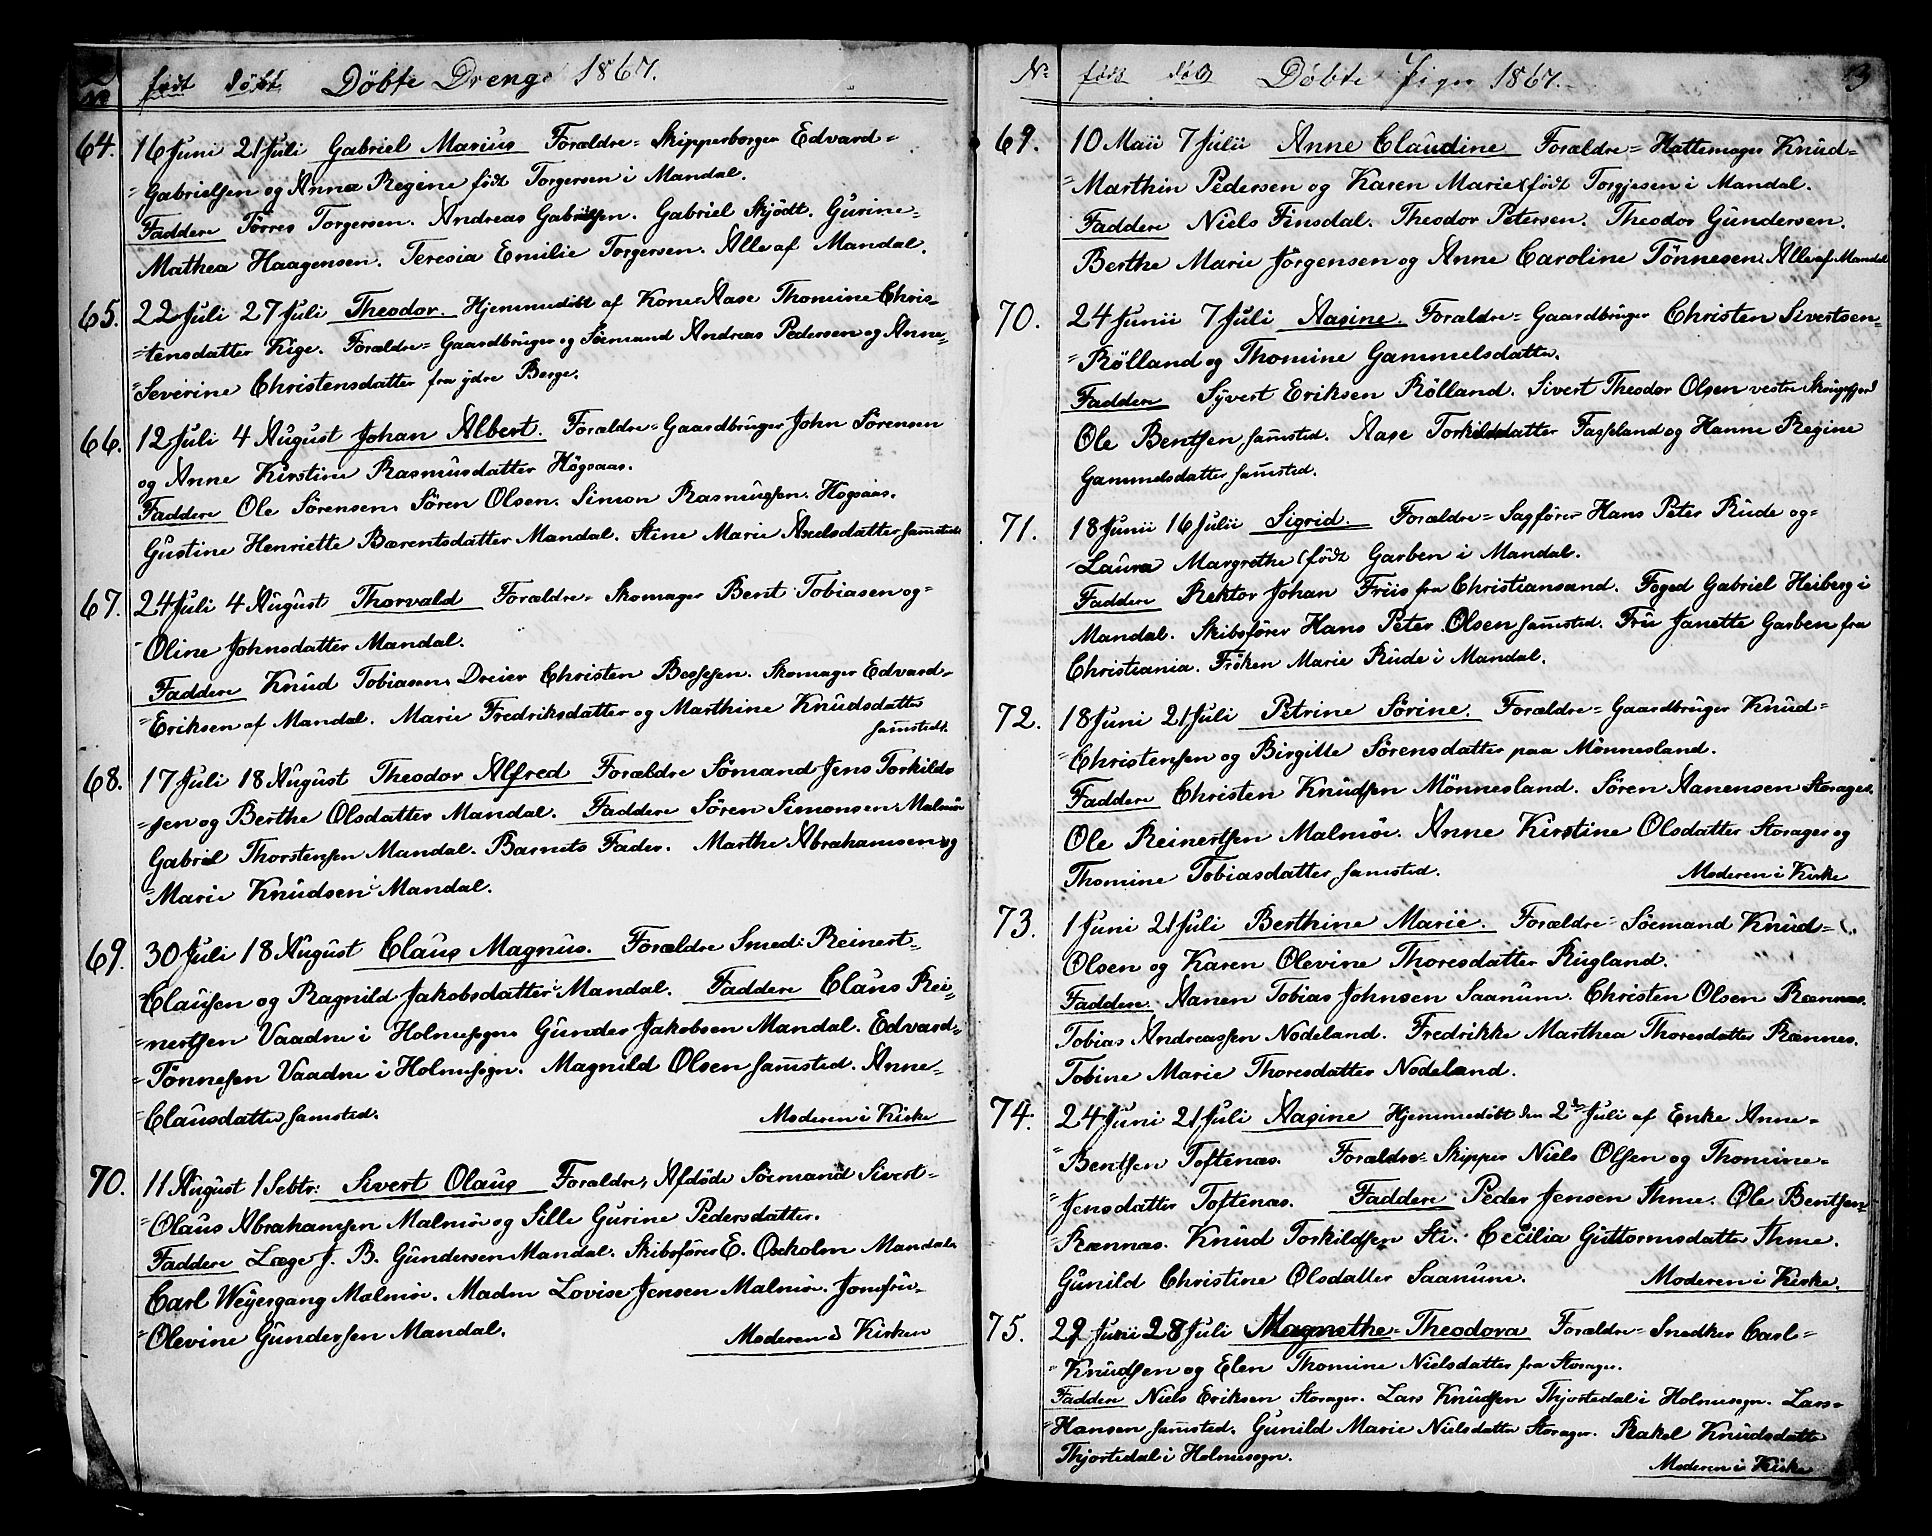 2
No født döbt Döbte Drenge 1867.
64. 16 Juni 21 Juli Gabriel Marius Forældre= Skipperborger Edvard=
=Gabrielsen og Anna Regine født Torgersen i Mandal.
Faddere Törres Torgersen. Andreas Gabrielsen. Gabriel Skjödt. Gurine=
Mathea Haagensen. Teresia Emilie Torgersen. Alle af Mandal.
65. 22 Juli 27 Juli Theodor. Hjemmedöbt af Kone Aase Thomine Chris=
=tensdatter Kige. Forældre= Gaardbruger og Sömand Andreas Pedersen og Anne=
=Severine Christensdatter fra ydre Berge.
66. 12 Juli 4 August Johan Albert. Forældre= Gaardbruger John Sörensen
og Anne Kirstine Rasmusdatter Högsaas.
Faddere Ole Sörensen. Sören Olsen. Simon Rasmussen. Högsaas.
Gustine Henriette Bærentsdatter Mandal. Stine Marie Axelsdatter samsted.
67. 24 Juli 4 August Thorvald Forældre= Skomager Bent Tobiasen og=
=Oline Johnsdatter Mandal.
Faddere Knud Tobiasen. Dreier Christen Bessesen. Skomager Edvard=
=Eriksen af Mandal. Marie Fredriksdatter og Marthine Knudsdatter
samsteds.
68. 17 Juli 18 August Theodor Alfred Forældre Sömand Jens Torkild=
=sen og Berthe Olsdatter Mandal. Faddere Sören Simonsen. Malmöe
Gabriel Thorstensen Mandal. Barnets Fader. Marthe Abrahamsen og
=Marie Knudsen i Mandal.
69. 30 Juli 18 August Claus Magnus. Forældre Smed: Reinert=
=Clausen og Ragnild Jakobsdatter Mandal. Faddere Claus Rei=
=nertsen Vaadne i Holmesogn. Gunder Jakobsen Mandal. Edvard=
=Tönnesen Vaadne i Holmesogn. Magnild Olsen samsted. Anne=
=Clausdatter samsted. Moderen i Kirke
70. 11 August 1 Sebtr: Sivert Olaus Forældre, Afdöde Söemand Sivert=
=Olaus Abrahamsen Malmöe og Sille Gurine Pedersdatter.
Faddere Læge J. B. Gundersen Mandal. Skibsförer E. Oxholm Mandal.
Carl Weyergang Malmöe. Madm Lovise Jensen Malmöe. Jomfru=
=Olevine Gundersen Mandal. Moderen i Kirken
No født döbt Döbte Piger 1867. 3
69. 10 Maii 7 Julii Anne Claudine Forældre= Hattemager Knud=
=Marthin Pedersen og Karen Marie født Torgjesen i Mandal.
Faddere Niels Finsdal. Theodor Petersen. Theodor Gundersen.
Berthe Marie Jörgensen og Anne Caroline Tönnesen. Alle af Mandal
70. 24 Junii 7 Juli Aasine Forældre= Gaardbruger Christen Sivertsen=
=Rölland og Thomine Gammelsdatter.
Faddere Syvert Eriksen Rölland. Sivert Theodor Olsen vestre Skrugefjord
Ole Bentsen samsted. Aase Torkildsdatter Fasseland og Hanne Regine
Gammelsdatter samsted.
71. 18 Junii 16 Julii Sigrid. Forældre= Sagförer Hans Peter Rude og=
=Laura Margrethe født Garben i Mandal.
Faddere Rektor Johan Friis fra Christiansand. Foged Gabriel Heiberg i
Mandal. Skibsförer Hans Peter Olsen samsted. Fru Janette Garben fra
Christiania. Fröken Marie Rude i Mandal.
72. 18 Juni 21 Juli Petrine Sörine. Forældre= Gaardbruger Knud=
=Christensen og Birgitte Sörensdatter paa Mönnesland.
Faddere Christen Knudsen Mönnesland. Sören Aanensen Storager.
Ole Reinertsen Malmöe. Anne Kirstine Olsdatter Storager og
Thomine Tobiasdatter samsted. Moderen i Kirke
73. 1 Juni 21 Juli Berthine Marie. Forældre= Söemand Knud=
Olsen og Karen Olevine Thoresdatter Rugland.
Faddere. Aanen Tobias Johnsen Saanum. Christen Olsen Rænnes.
Tobias Andreassen Nodeland. Fredrikke Marthea Thoresdatter Rænnes.
Tobine Marie Thoresdatter Nodeland.
74. 24 Juni 21 Juli Aasine Hjemmedöbt den 2de Juli af Enke Anne=
=Bentsen Toftenæs. Forældre= Skipper Niels Olsen og Thomine=
=Jensdatter Toftenæs. Faddere Peder Jensen Ihme. Ole Bentsen
=Rænnæs. Knud Torkildsen Sti. Cecilia Guttormsdatter Ihme.
Gunild Christine Olsdatter Saanum. Moderen i Kirke.
75. 29 Junii 28 Juli Magnethe= Theodora Forældre= Snedker Carl=
=Knudsen og Elen Thomine Nielsdatter fra Storager.
Faddere Niels Eriksen Storager. Lars Knudsen Thjortedal i Holmesogn. Lars=
=Hansen samsted. Gunild Marie Nielsdatter Storager. Rakel Knudsdatter
Thjortedal i Holmesogn. Moderen i Kirke